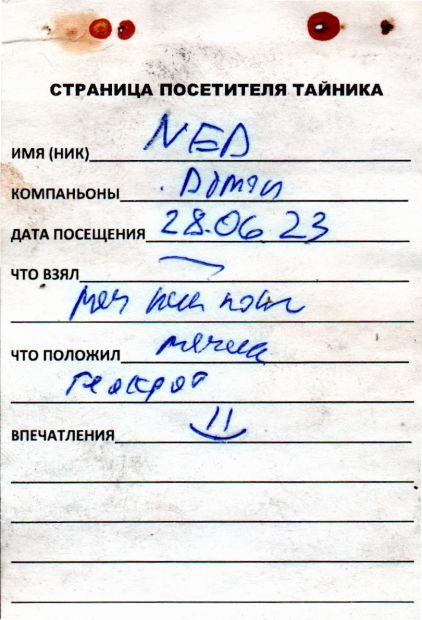 СТРАНИЦА ПОСЕТИТЕЛЯ ТАЙНИКА
ИМЯ (НИК) NED
КОМПАНЬОНЫ
ДАТА ПОСЕЩЕНИЯ 28.06.23
ЧТО ВЗЯЛ
ЧТО ПОЛОЖИЛ
геокрот
ВПЕЧАТЛЕНИЯ